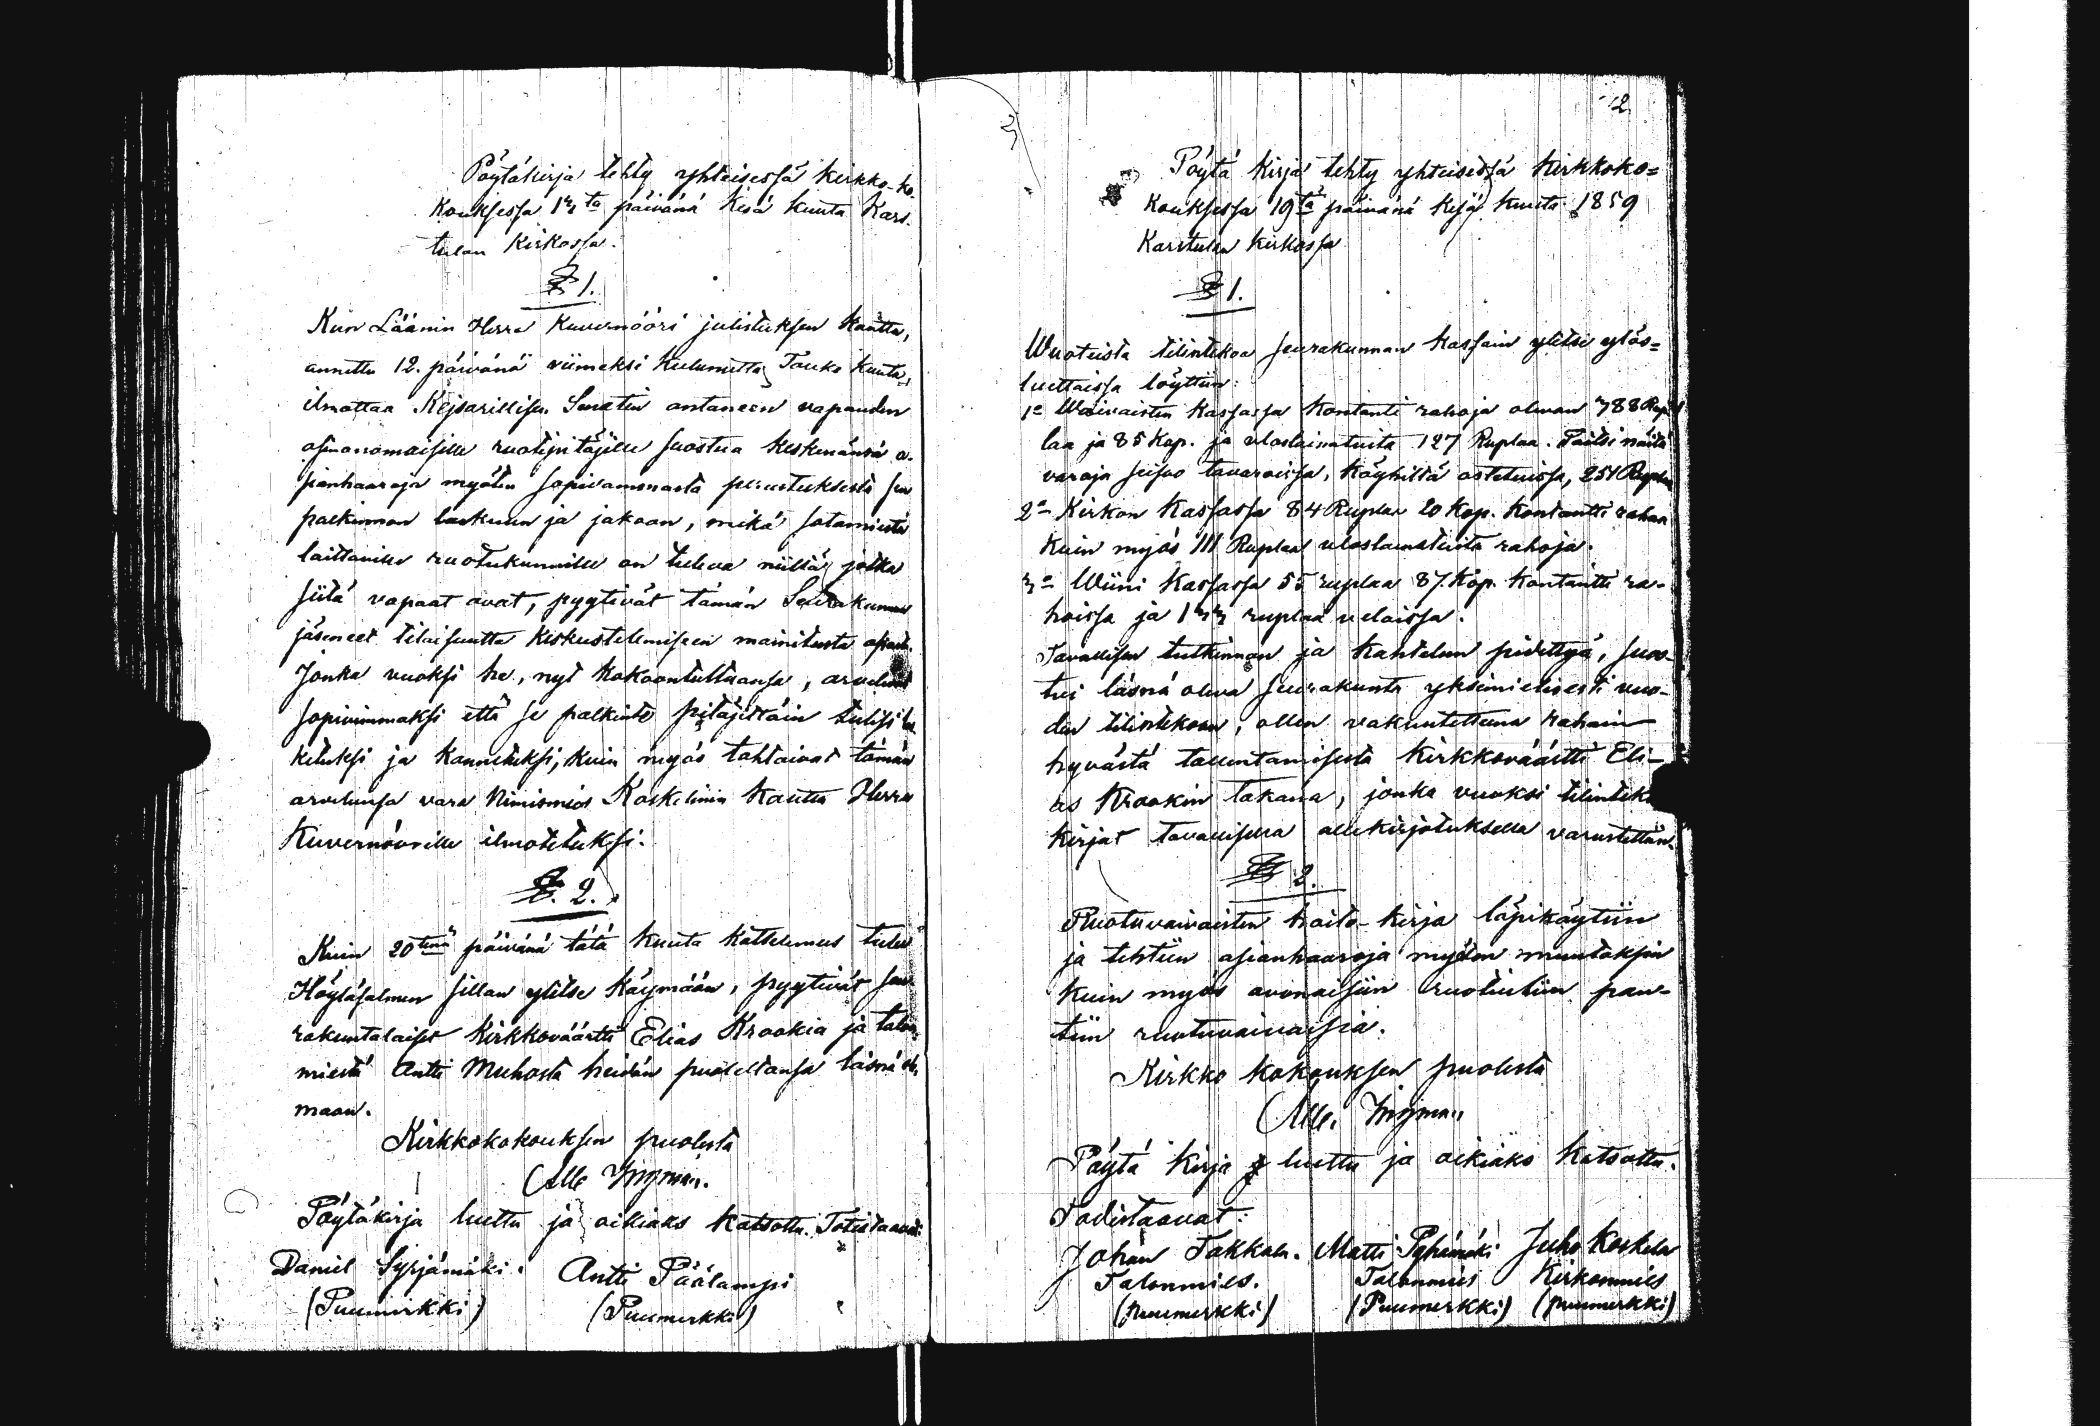 Pöytäkirja tehty yhteisessä kirkko-ko
kouksessa 13ta päivänä Kesä kuuta Kars-
tulan Kirkossa.
§ 1.
Kun Läänin Herra Kuvernööri julistuksen kautta,
annettu 12. päivänä viimeksi kulunutta Touko kuuta,
ilmottaa Kejsarillisen Senatin antaneen vapauden
asianomaisille ruotipitäjille suostua keskenänsä a-
sianhaaroja myöten sopivammasta perustuksesta sen
palkinnon laskuun ja jakoon, mikä sotamiestä
laittaville ruotukunnille on tuleva niiltä, jotka
siitä vapaat ovat, pyytivät tämän Seurakunnan
jäsenet tilaisuutta keskustelemiseen mainitusta asiast.
Jonka vuoksi he, nyt kokoontultuansa, arvelivat
sopivimmaksi että se palkinto pitäjittäin tulisi las
ketuksi ja kannetuksi, kuin myös tahtoivat tämän
arvelunsa vara Nimismies Koskelinin kautta Herra
Kuvernöörille ilmotetuksi.
§. 2.
Kuin 20tenä päivänä tätä kuuta katselemus tulee
Höytäsalmen sillan ylitse käymään, pyytivät seu
rakuntalaiset kirkkoväärtti Elias Krookia ja talon
miestä Antti Muhosta heidän puoleltansa läsnä ole
maan.
Kirkkokokouksen puolesta
Alb Ingman.
Pöytäkirja luettu ja oikiaks katsottu. Totistaavat:
Daniel Syrjämäki. Antti Päälampi
(Puumerkki) (Puumerkki)
2.
Pöytä Kirja tehty yhteisessä kirkkoko=
kouksessa 19tä päivänä Kesä kuuta 1859
Karstulan kirkossa
§ 1.
Wuoteista tilintekoa seurakunnan kassain ylitse ylös=
luettaissa löyttiin:
1o Waivaisten kassassa kontanti rahoja olevan 788 Rup
laa ja 85 Kop. ja uloslainatuita 127 Ruplaa. Paitsi näitä
varoja seisoo tavaroissa, köyhiltä ostetuissa, 251 Ruplaa
2o Kirkon Kassassa 84 Ruplaa 20 kop. kontantti rahaa
kuin myös 111 Ruplaa uloslainatuita rahoja.
3o Wiini kassassa 55 ruplaa 87 kop. kontantti ra-
hoissa ja 133 ruplaa veloissa.
Tavallisen tutkinnon ja kantelun pidettyä, suos-
tui läsnä oleva seurakunta yksimielisesti vuo-
den tilintekoon, ollen vakuutettuna rahain
hyvästä tallentamisesta kirkkoväärtti Eli-
as Krookin takana, jonka vuoksi tilinteko
kirjat tavallisella allekirjotuksella varustettiin.
§ 2.
Ruotuvaivaisten hoito-kirja läpikäytiin
ja tehtiin asianhaaroja myöten muutoksia
kuin myös avonaisiin ruotuihin pan-
tiin ruotuvaivaisia.
Kirkko kokouksen puolesta
Alb. Ingman
Pöytä kirja luettu ja oikiaks katsottu.
Todistaavat:
Johan Takkala. Matti Pyhämäki Juho Koskela
Talonmies. Talonmies Kirkonmies
(puumerkki) (Puumerkki) (puumerkki)